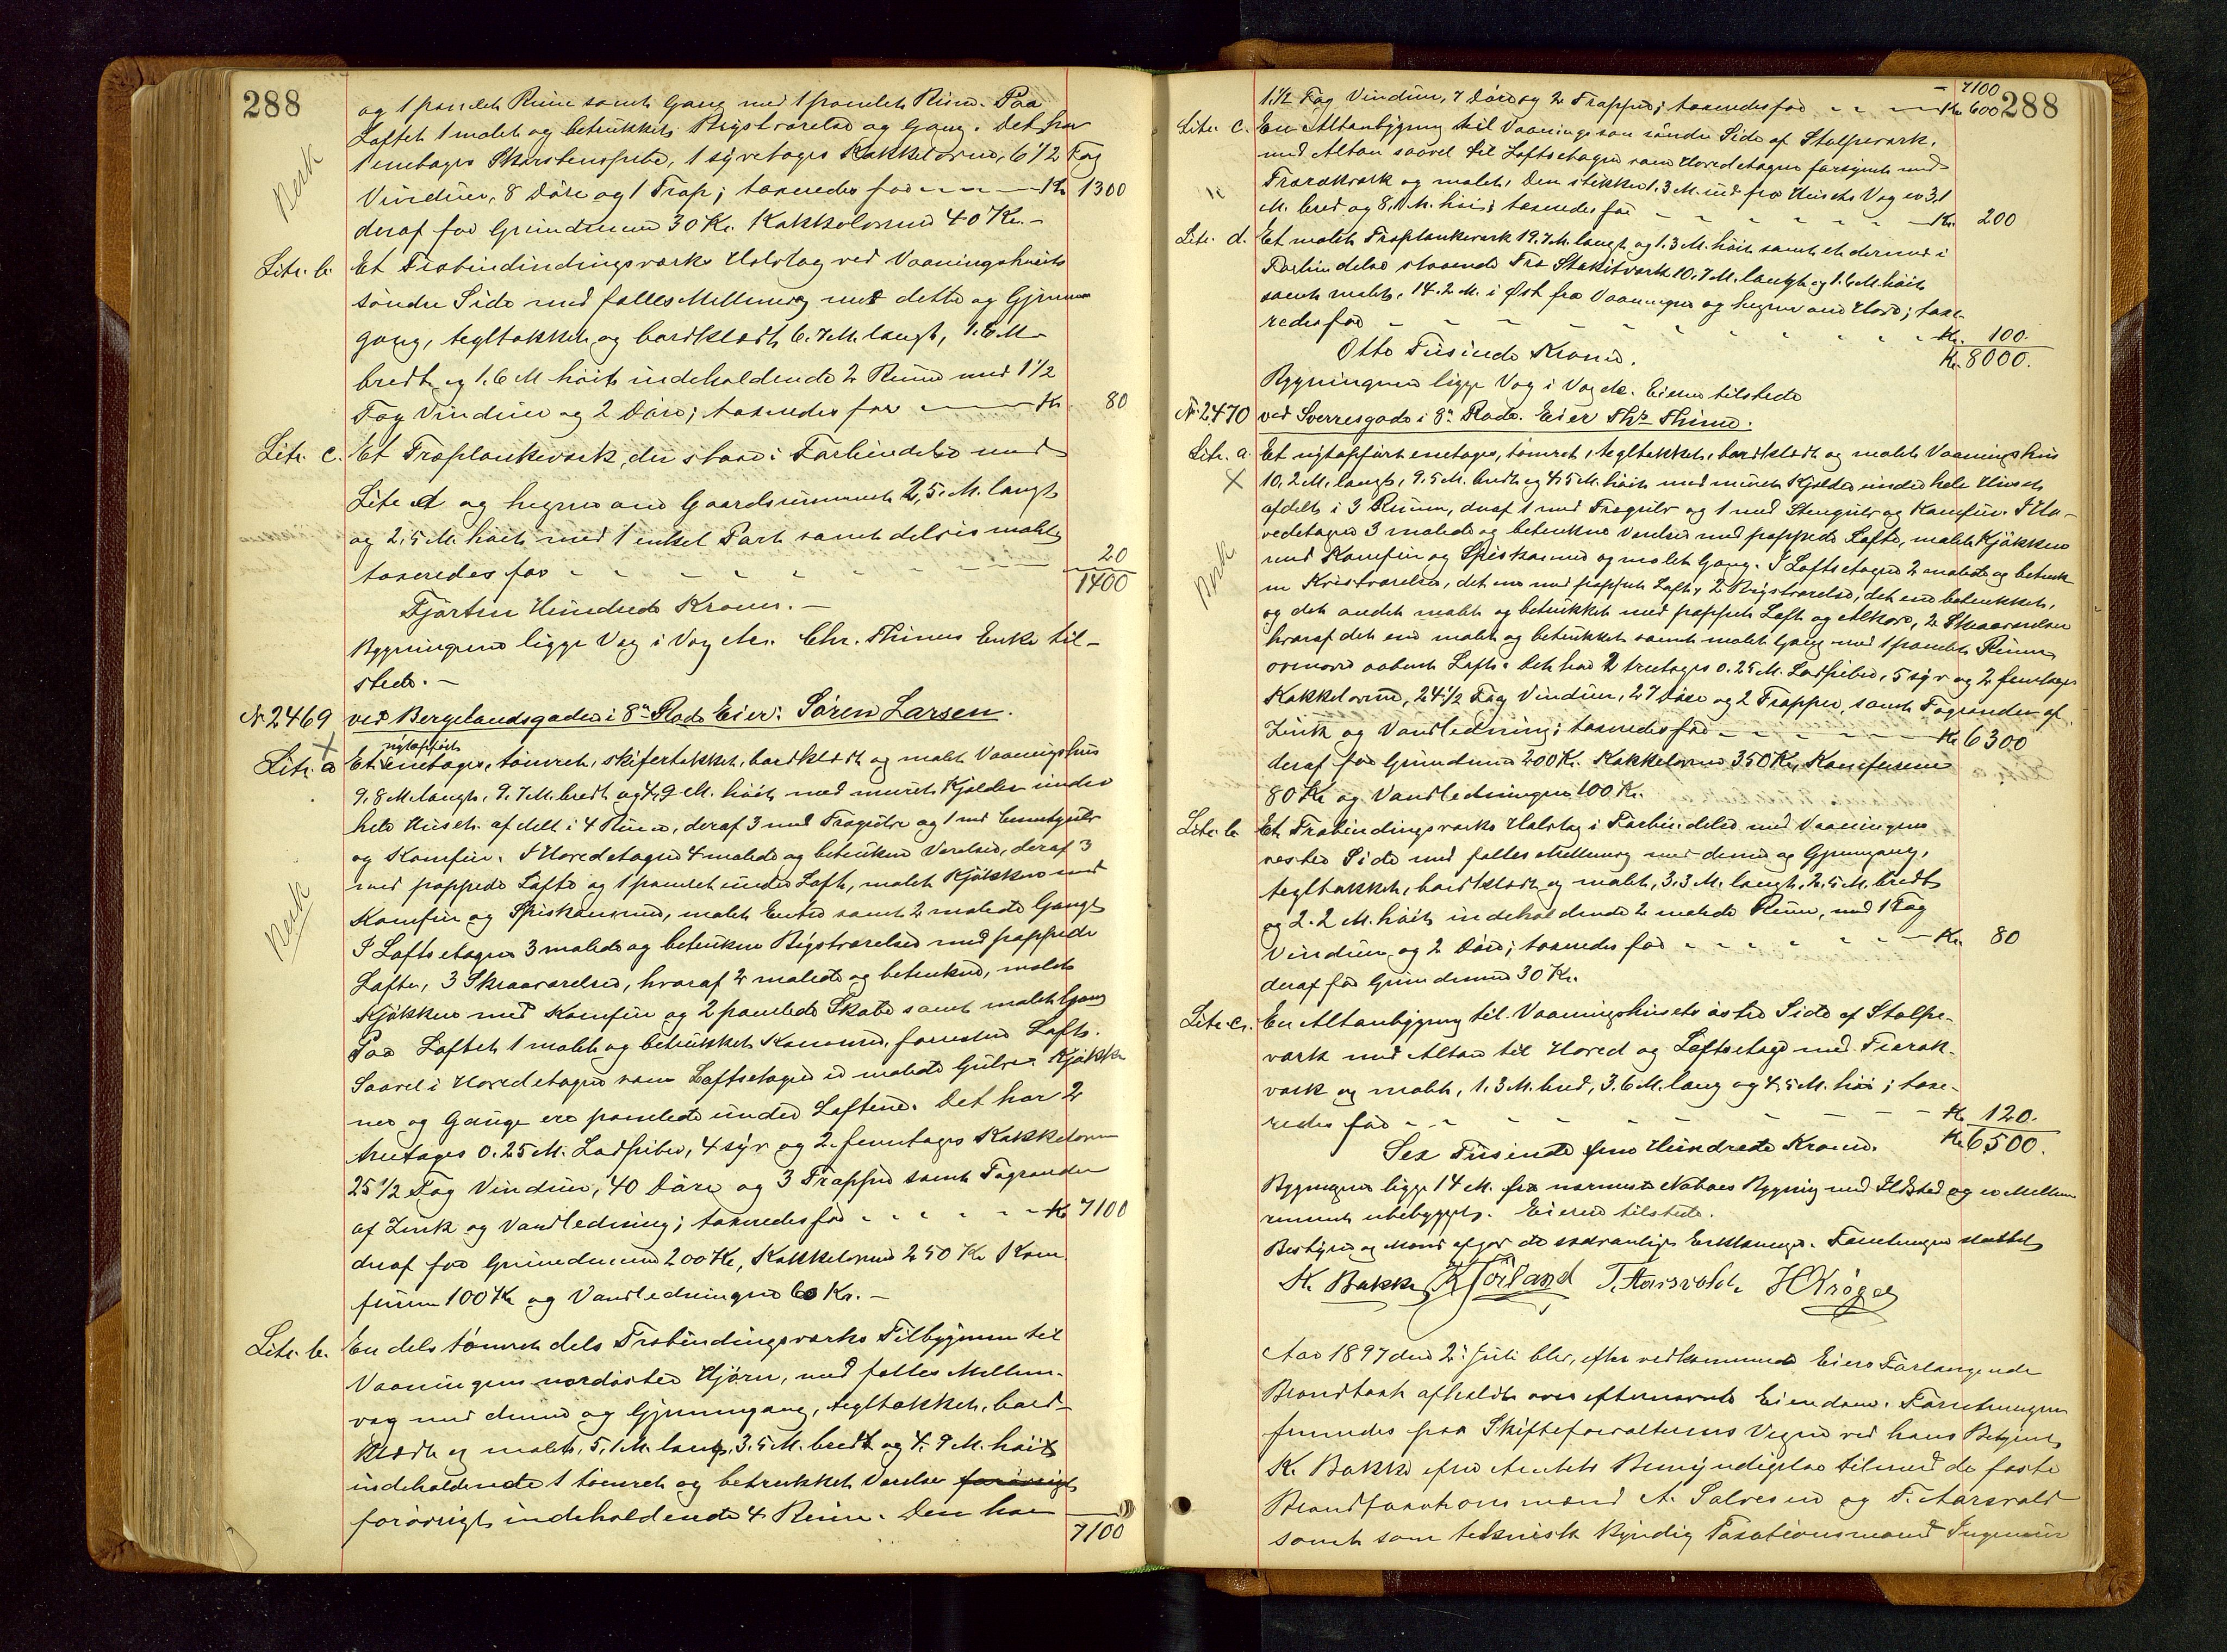 288
og 1 panelet Rum samt Gang med 1 panelet Rum. Paa
Loftet 1 malet og betrukket Rygstværelse og Gang. Det har
1 enetages Skorstenspibe, 1 syvetages Kakkelovn, 6 1/2 Fag
Vinduer, 8 Døre og 1 Trap; taxeredes for Kr 1300
deraf for Grundmuren 30 Kr. Kakkelovnene 40 Kr. -
Berk
Litr. b. Et Træbindindingsværks Halvtag ved Vaaningshusets
søndre Side med fælles Mellemvæg med dette og Gjennem-
gang, tegltækket og bordklædt 6.7 M. langt, 1.6 M.
bredt og 1.6 M høit indeholdende 2 Rum med 1 1/2
Fag Vinduer og 2 Døre; taxeredes for Kr. 80
Litr. c. Et Træplankeværk, der staar i Forbindelse med
Litr. a og hegner om Gaardsrummet 2,5 M. langt
og 2,5 M. høit med 1 enkel Port samt delvis malet
taxeredes for 20
1400
Fjorten Hundrede Kroner. -
Bygningerne ligge Væg i Væg etc. Chr. Thimes Enke til-
stede. -
№ 2469 ved Bergelandsgaden i 8de Rode Eier: Søren Larsen.
Litr. a Et nyopført enetages, tømret, skifertækket, bordklædt og malet Vaaningshus
9,8 M. langt, 9.7 M. bredt og 4,9 M. høit med muret Kjælder under
hele Huset afdelt i 4 Rum, deraf 3 med Trægulv og 1 med Cementgulv
og Komfur. I Hovedetagen 4 malede og betrukne Værelser, deraf 3
med pappede Lofte og 1 panelet under Loft, malet Kjøkken med
Komfur og Spiskammer, malet Entre samt 2 malede Gange
Berk
I Loftsetagen 3 malede og betrukne Rygstværelser med pappede
Lofter, 3 Skraaværelser, hvoraf 2 malede og betrukne, malet
Kjøkken med Komfur og 2 panelede Skabe samt malet Gang
Paa Loftet 1 malet og betrukket Kammer, forresten Loft.
Saavel i Hovedetagen som Loftsetagen er malede Gulve. Kjøkke-
ner og Gange ere panelede under Loftene. Det har 2
treetages 0.25 M. Ladpiber, 4 syv og 2 femetages Kakkelovne
25 1/2 Fag Vinduer, 40 Døre og 3 Trapper samt Tagrender
af Zink og Vandledning; taxeredes for Kr 7100
deraf for Grundmuren 200 Kr, Kakkelovnene 250 Kr Kom-
furene 100 Kr og Vandledningen 60 Kr. -
Litr. b. En dels tømret dels Træbindingsværks Tilbygning til
Vaaningens nordøstre Hjørne, med fælles Mellem-
væg med denne og Gjennemgang, tegltækket, bord-
klædt og malet, 5,1 M. lang, 3.5 M. bredt og 4.9 M. høit
indeholdende 1 tømret og betrukket Værelse forøvrigt
forøvrigt indeholdende 4 Rum. Den har
7100
288
7100
1 1/2 Fag Vinduer, 7 Døre og 2 Trapper; taxeredes for Kr 600
Litr. c. En Altanbygning til Vaaningens søndre Side af Stolpeværk,
med Altan saavel til Loftsetagen som Hovedetagen forsynet med
Trærækværk og malet. Den stikker 1.3 M. ud fra Husets Væg er 3,1
M. bred og 8,1 M. høi; taxeredes for Kr. 200
Litr. d. Et malet Træplankeværk 19.7 M. langt og 1.3 M. høit samt et dermed i
Forbindelse staaende Træ Stakitværk 10.7 M. langt og 1.6 M. høit
samt malet. 14.2 M. i Øst fra Vaaningen og hegner om Have; taxe-
redes for Kr. 100.
Otte Tusinde Kroner. Kr. 8000.
Bygningerne ligge Væg i Væg etc. Eieren tilstede
№ 2470 ved Sverresgade i 8de Rode. Eier Ths Thime.
Litr. a. Et nyopført enetages, tømret, tegltækket, bordklædt og malet Vaaningshus
10.2 M. langt, 9.5 M. bredt og 4.5 M. høit med muret Kjælder under hele Huset
afdelt i 3 Rum, deraf 1 med Trægulv og 1 med Stengulv og Komfur. I Ho-
vedetagen 3 malede og betrukne Værelser med pappede Lofte, malet Kjøkken
med Komfur og Spiskammer og malet Gang. I Loftsetagen 2 malede og betruk-
ne Kvistværelser, det ene med pappet Loft, 2 Rygstværelser, det ene betrukket,
Berk
og det andet malet og betrukket med pappet Loft og Alkove, 2 Skraaværelser
hvoraf det ene malet og betrukket samt malet Gang med 1 panelet Rum,
ovenover aabent Loft. Det har 2 treetages 0.25 M. Ladpiber, 5 syv og 2 femetages
Kakkelovne, 24 1/2 Fag Vinduer, 27 Døre og 2 Trapper, samt Tagrender af
Zink og Vandledning; taxeredes for Kr 6300
deraf for Grundmur 200 Kr. Kakkelovnene 350 Kr, Komfurene
80 Kr og Vandledningen 100 Kr.
Litr. b. Et Træbindingsværks Halvtag i Forbindelse med Vaaningens
vestre Side med fælles Mellemvæg med denne og Gjennemgang,
tegltækket, bordklædt og malet, 3.3 M. langt, 2.5 M. bredt
og 2.2 M. høit indeholdende 2 malede Rum, med 1 Fag
Vinduer og 2 Døre; taxeredes for Kr. 80
deraf for Grundmuren 30 Kr.
Litr. c. En Altanbygning til Vaaningshusets østre Side af Stolpe-
værk med Altan til Hoved og Loftsetage med Trræk-
værk og malet, 1.3 M. bred, 3.6 M. lang og 4,5 M. høi; taxe-
redes for Kr 120.
Sex Tusinde fem Hundrede Kroner. Kr 6500.
Bygningerne ligge 14 M. fra nærmeste Naboes Bygning med Ildsted og er Mellem-
rummet ubebygget. Eieren tilstede.
Bestyrer og Mænd afgav de sædvanlige Erklæringer. Forretningen sluttet
K. Bakke K Tørland T. Aarsvold. H Krøger
Aar 1897 den 2. Juli blev, efter vedkommende Eiers Forlangende
Brandtaxt afholdt over efternævnte Eiendom. Forretningen
fremmedes paa Skifteforvalterens Vegne ved hans Betjent
K. Bakke efter Amtets Bemyndigelse tilmed de faste
Brandtaxationsmænd A. Salvesen og T. Aarsvold
samt som teknisk kyndig Taxationsmand Ingeniør